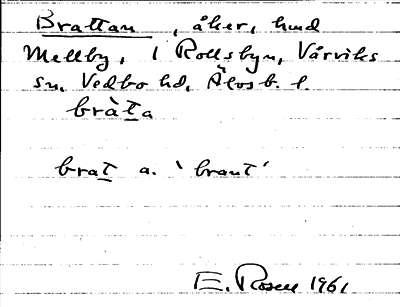 Brattan, åker, hmd
Mellby, 1 Rollsbyn, Vårviks
sn, Vedbo hd, Älvsb. l.
bràta
brat a. 'brant'
E. Rosell 1961